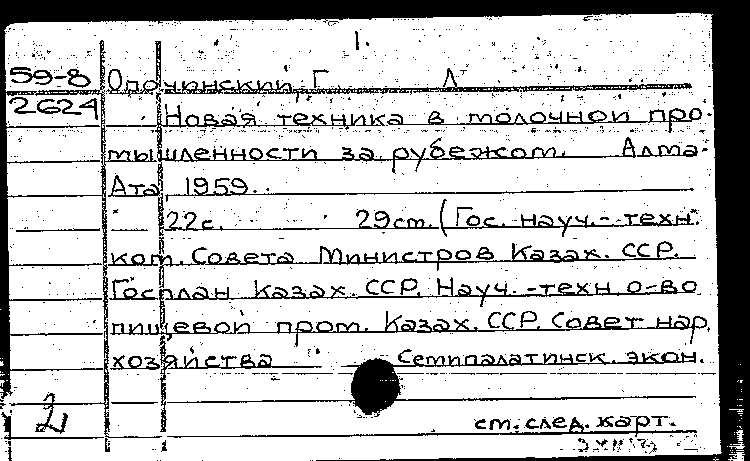 1.
59-8 Опочинский, Г Л
2624 Новая техника в молочной про-
мышленности за рубежом. Алма-
Ата, 1959.
22с. 29см. (Гос. науч.-техн.
ком. Совета Министров Казах. ССР.
Госплан Казах. ССР. Науч.-техн о-во
пищевой пром. Казах. ССР. Совет нар.
хозяйства Семипалатинск. экон.
2
см. след. карт.